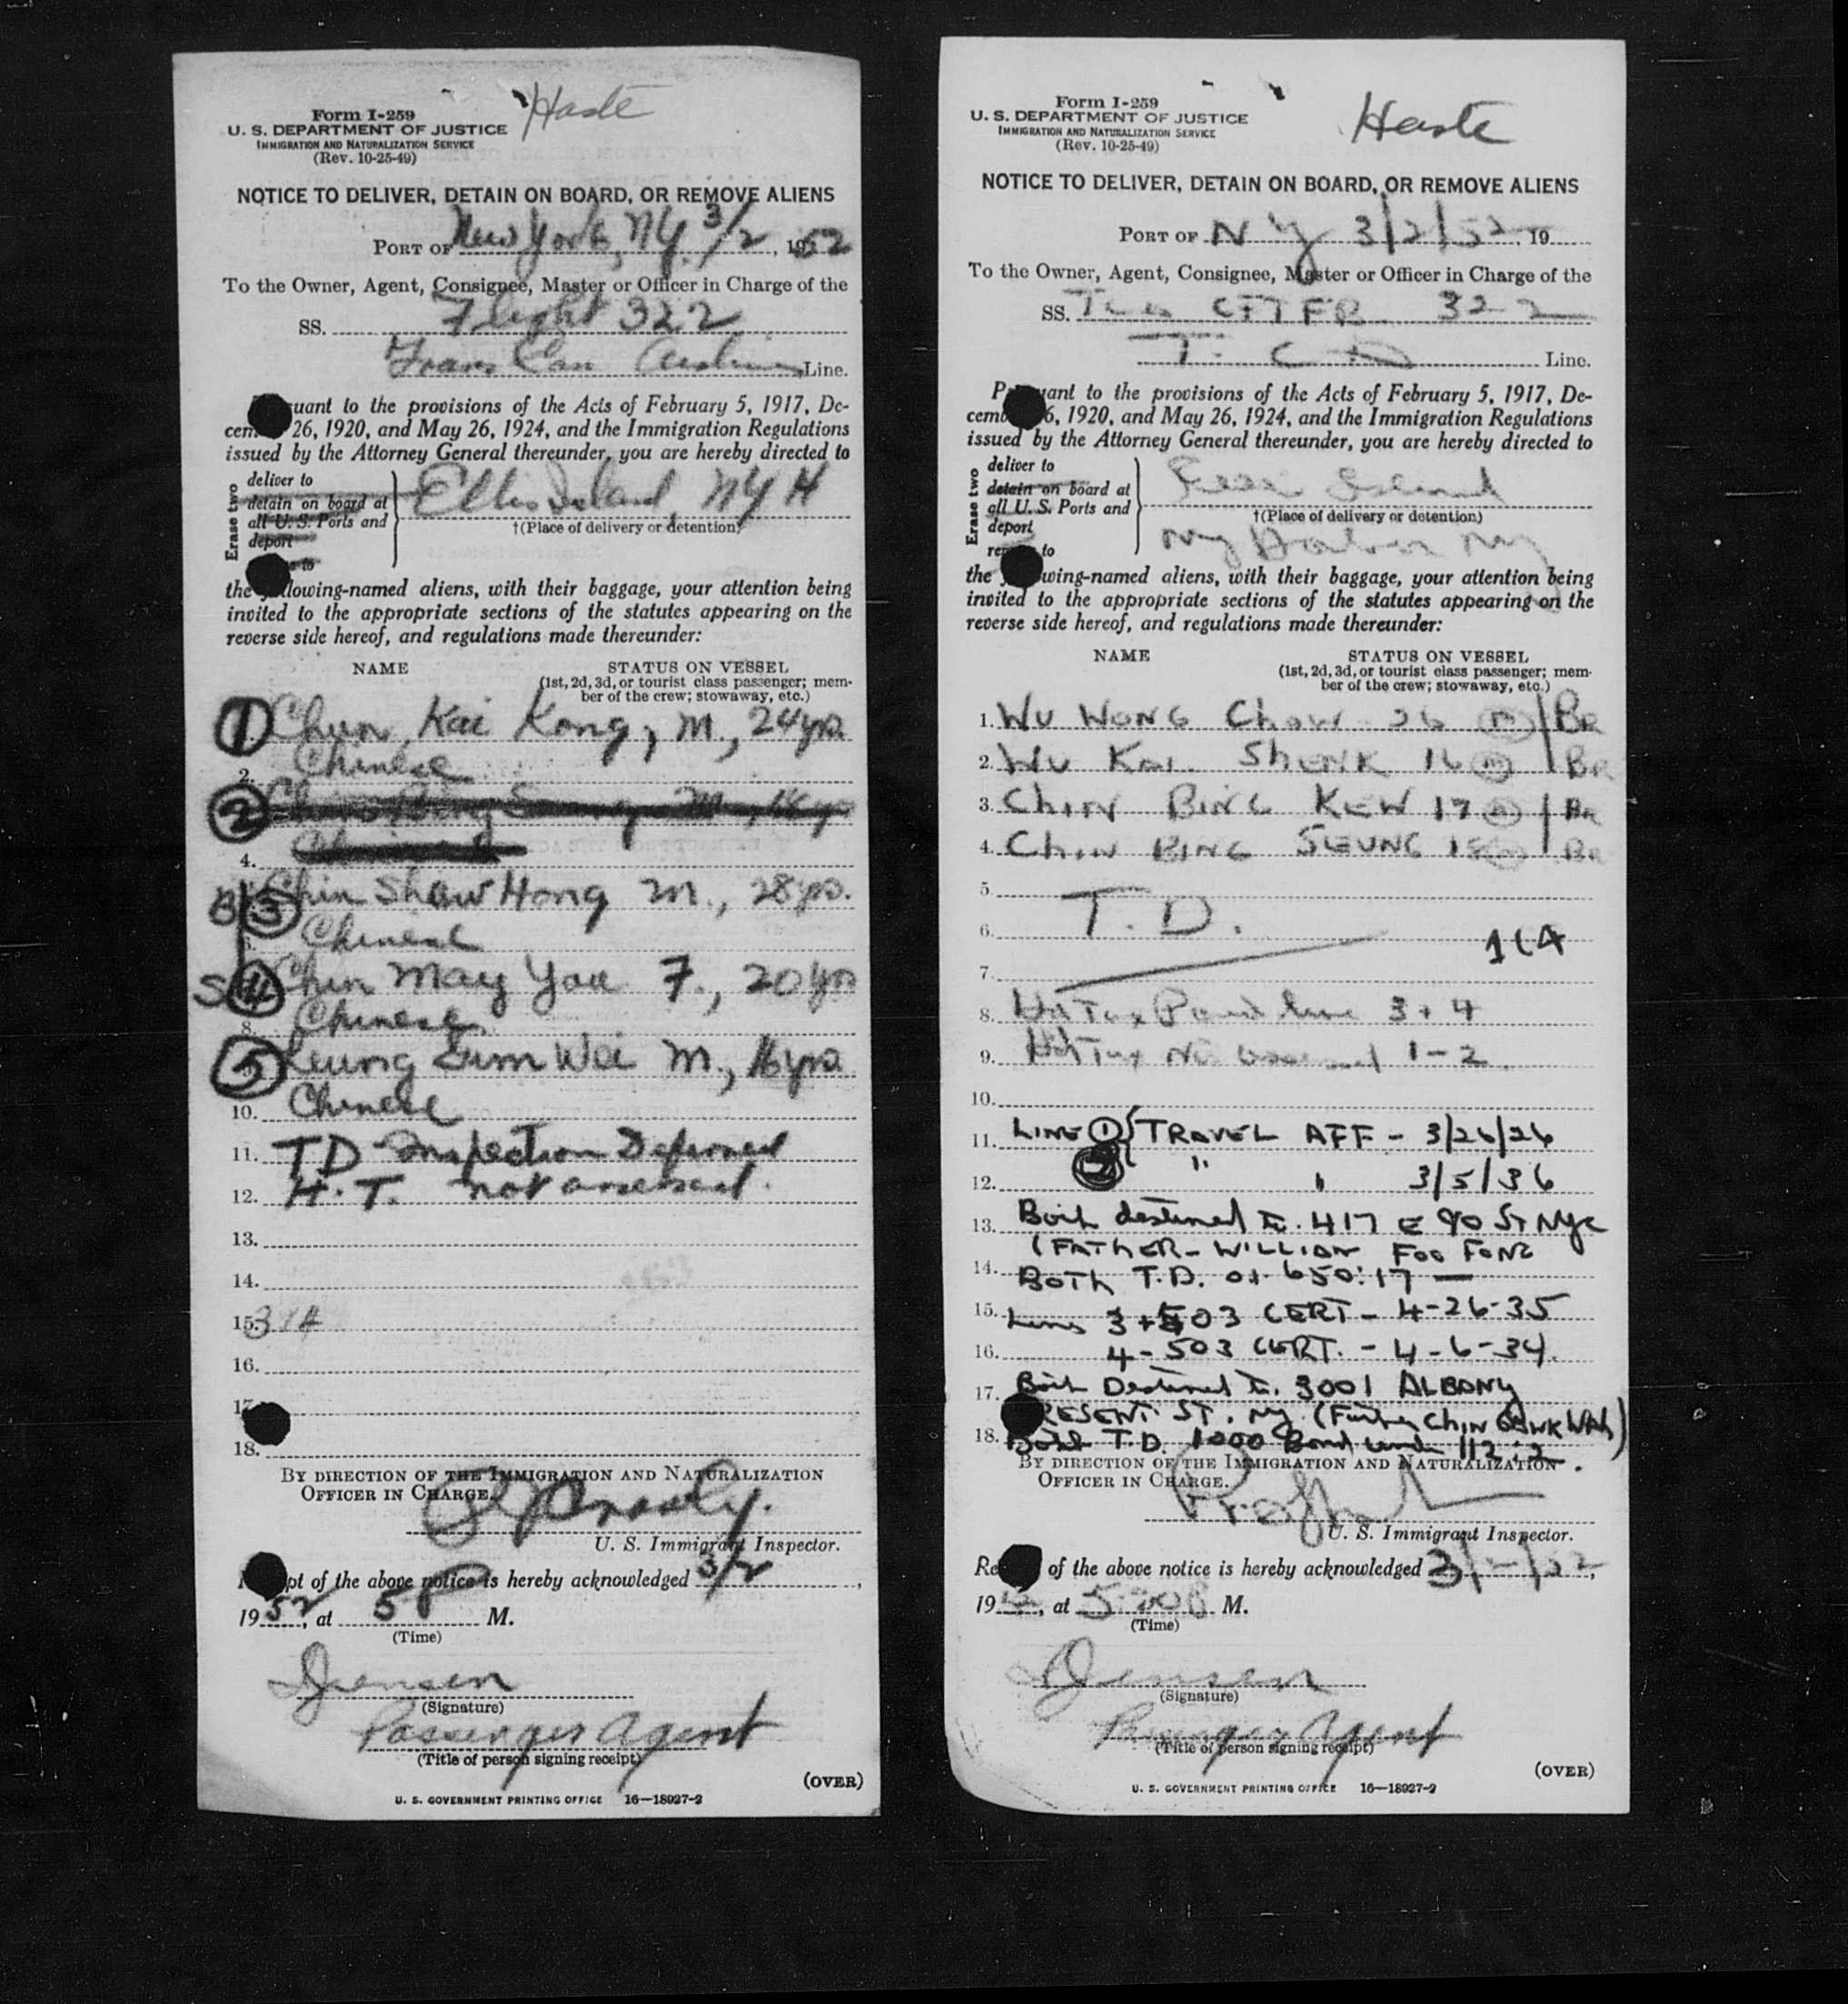 Form I-259
U. S. DEPARTMENT OF JUSTICE
IMMIGRATION AND NATURALIZATION SERVICE
(Rev. 10-25-49)
Haste
NOTICE TO DELIVER, DETAIN ON BOARD, OR REMOVE ALIENS
PORT OF New York, NY. 3/2, 1952
To the Owner, Agent, Consignee, Master or Officer in Charge of the
SS. Flight 322
Trans Can Airlines Line.
uant to the provisions of the Acts of February 5, 1917, De-
cem 26, 1920, and May 26, 1924, and the Immigration Regulations
issued by the Attorney General thereunder, you are hereby directed to
Erase two
deliver to
detain on board at
all U. S. Ports and
deport
to
Ellis Island, NY H
†(Place of delivery or detention)
the lowing-named aliens, with their baggage, your attention being
invited to the appropriate sections of the statutes appearing on the
reverse side hereof, and regulations made thereunder:
NAME STATUS ON VESSEL
(1st, 2d, 3d, or tourist class passenger; mem-
ber of the crew; stowaway, etc.)
1 Chun Kai Kong, M., 24 yrs.
2. Chinese
2
4.
3 Chin Shaw Hong M., 28 yrs.
Chinese
4 Chin May Yae F., 20 yrs
8. Chinese
5 Leung Sum Wei M., 16 yrs.
10. Chinese
11. TD Inspection Deferred
12. H.T. not assessed.
13.
14.
15. 314
16.
17
18.
BY DIRECTION OF THE IMMIGRATION AND NATURALIZATION
OFFICER IN CHARGE.
U. S. Immigrant Inspector.
pt of the above notice is hereby acknowledged 3/2,
1952, at 5 P M.
(Time)
Jensen
(Signature)
Passenger Agent
(Title of person signing receipt)
(OVER)
U. S. GOVERNMENT PRINTING OFFICE 16—18927-2
Form I-259
U. S. DEPARTMENT OF JUSTICE
IMMIGRATION AND NATURALIZATION SERVICE
(Rev. 10-25-49)
Haste
NOTICE TO DELIVER, DETAIN ON BOARD, OR REMOVE ALIENS
PORT OF N Y 3/2/52, 19
To the Owner, Agent, Consignee, Master or Officer in Charge of the
SS. CFTFR 322
T. C A Line.
P ant to the provisions of the Acts of February 5, 1917, De-
cemb 6, 1920, and May 26, 1924, and the Immigration Regulations
issued by the Attorney General thereunder, you are hereby directed to
Erase two
deliver to
detain on board at
all U. S. Ports and
deport
re to
Island
†(Place of delivery or detention)
NY Harbor NY
the wing-named aliens, with their baggage, your attention being
invited to the appropriate sections of the statutes appearing on the
reverse side hereof, and regulations made thereunder:
NAME STATUS ON VESSEL
(1st, 2d, 3d, or tourist class passenger; mem-
ber of the crew; stowaway, etc.)
1. WU WONG CHOW 26 M BR
2. WU KAI SHENK 16 M BR
3. CHIN BING KEW 17 M BR
4. CHIN BING SEUNG 18 M BR
5.
6. T.D.
7.
8. Hd Tax Paid line 3 + 4
9. Hd Tax Not assessed 1-2.
10.
11. LINE 1 TRAVEL AFF - 3/26/26
12. 2 " " 3/5/36
13. Both destined to. 417 E 90 ST NYC
(FATHER - WILLIAM FOO FONG
14. BOTH T.D. 650:17 —
15. Lines 3 + 503 CERT - 4-26-35
16. 4 - 503 CERT. - 4-6-34.
17. Both Destined to. 3001 ALBANY
RESENT ST. NY (Father CHIN WAH)
18. Both T.D. 1000 Bond under 112.2.
BY DIRECTION OF THE IMMIGRATION AND NATURALIZATION
OFFICER IN CHARGE.
U. S. Immigrant Inspector.
Re of the above notice is hereby acknowledged 3/2/52,
1952, at 5:00 P M.
(Time)
Jensen
(Signature)
Passenger Agent
(Title of person signing receipt)
(OVER)
U. S. GOVERNMENT PRINTING OFFICE 16—18927-2